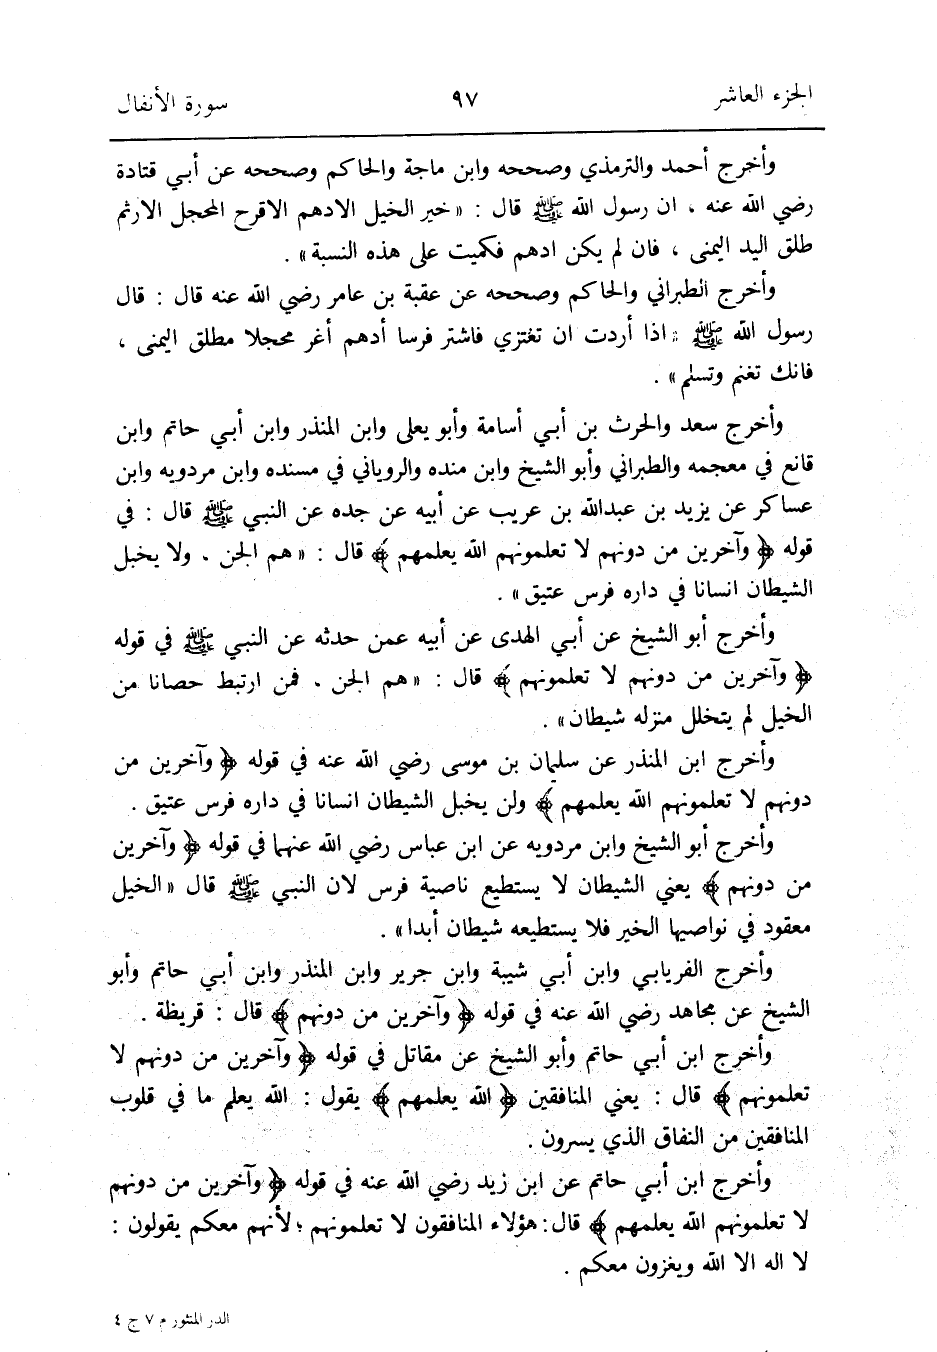 الجزء العاشر ٩٧ سورة الأنفال
وأخرج أحمد والترمذي وصححه وابن ماجة والحاكم وصححه عن أبي قتادة
رضي الله عنه ، ان رسول الله ﷺ قال : « خير الخيل الادهم الاقرح المحجل الارثم
طلق اليد اليمنى ، فان لم يكن ادهم فكميت على هذه النسبة » .
وأخرج الطبراني والحاكم وصححه عن عقبة بن عامر رضي الله عنه قال : قال
رسول الله ﷺ « اذا أردت ان تغتزي فاشتر فرسا أدهم أغر محجلا مطلق اليمنى ،
فانك تغنم وتسلم » .
وأخرج سعد والحرث بن أبي أسامة وأبو يعلى وابن المنذر وابن أبي حاتم وابن
قانع في معجمه والطبراني وأبو الشيخ وابن منده والروياني في مسنده وابن مردويه وابن
عساكر عن يزيد بن عبدالله بن عريب عن أبيه عن جده عن النبي ﷺ قال : في
قوله ﴿ وآخرين من دونهم لا تعلمونهم الله يعلمهم ﴾ قال : « هم الجن . ولا يخبل
الشيطان انسانا في داره فرس عتيق » .
وأخرج أبو الشيخ عن أبي الهدى عن أبيه عمن حدثه عن النبي ﷺ في قوله
﴿ وآخرين من دونهم لا تعلمونهم ﴾ قال : « هم الجن . فمن ارتبط حصانا من
الخيل لم يتخلل منزله شيطان » .
وأخرج ابن المنذر عن سليمان بن موسى رضي الله عنه في قوله ﴿ وآخرين من
دونهم لا تعلمونهم الله يعلمهم ﴾ ولن يخبل الشيطان انسانا في داره فرس عتيق .
وأخرج أبو الشيخ وابن مردويه عن ابن عباس رضي الله عنهما في قوله ﴿ وآخرين
من دونهم ﴾ يعني الشيطان لا يستطيع ناصية فرس لان النبي ﷺ قال « الخيل
معقود في نواصيها الخير فلا يستطيعه شيطان أبدا » .
وأخرج الفريابي وابن أبي شيبة وابن جرير وابن المنذر وابن أبي حاتم وأبو
الشيخ عن مجاهد رضي الله عنه في قوله ﴿ وآخرين من دونهم ﴾ قال : قريظة .
وأخرج ابن أبي حاتم وأبو الشيخ عن مقاتل في قوله ﴿ وآخرين من دونهم لا
تعلمونهم ﴾ قال : يعني المنافقين ﴿ الله يعلمهم ﴾ يقول : الله يعلم ما في قلوب
المنافقين من النفاق الذي يسرون .
وأخرج ابن أبي حاتم عن ابن زيد رضي الله عنه في قوله ﴿ وآخرين من دونهم
لا تعلمونهم الله يعلمهم ﴾ قال: هؤلاء المنافقون لا تعلمونهم ؛ لأنهم معكم يقولون :
لا اله الا الله ويغزون معكم .
الدر المنثور م ٧ ج ٤